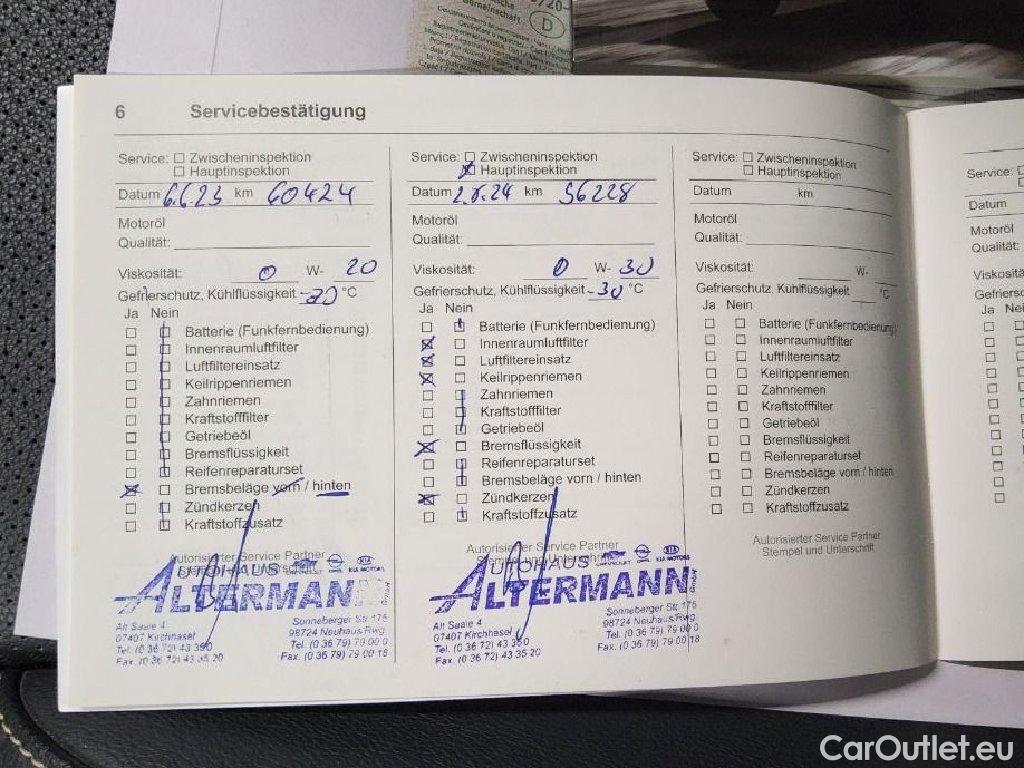 Gemeinschaft
D
6 Servicebestätigung
Service: Zwischeninspektion
Hauptinspektion
Datum 6.6.23 km 60424
Motoröl
Qualität:
Viskosität: 0 W- 20
Gefrierschutz, Kühlflüssigkeit °C
Ja Nein
Batterie (Funkfernbedienung)
Innenraumluftfilter
Luftfiltereinsatz
Keilrippenriemen
Zahnriemen
Kraftstofffilter
Getriebeöl
Bremsflüssigkeit
Reifenreparaturset
Bremsbeläge vorn / hinten
Zündkerzen
Kraftstoffzusatz
Autorisierter Service Partner
Stempel und Unterschrift
AUTOHAUS KIA MOTORS
ALTERMANN GmbH
Alt Saale 4
07407 Kirchhasel
Tel. (0 36 72) 43 350
Fax. (0 36 72) 43 35 20
Sonneberger Str. 176
98724 Neuhaus/Rwg.
Tel. (0 36 79) 79 00 0
Fax. (0 36 79) 79 00 18
Service: Zwischeninspektion
Hauptinspektion
Datum km 56228
Motoröl
Qualität:
Viskosität: 0 W- 30
Gefrierschutz, Kühlflüssigkeit -30 °C
Ja Nein
Batterie (Funkfernbedienung)
Innenraumluftfilter
Luftfiltereinsatz
Keilrippenriemen
Zahnriemen
Kraftstofffilter
Getriebeöl
Bremsflüssigkeit
Reifenreparaturset
Bremsbeläge vorn / hinten
Zündkerzen
Kraftstoffzusatz
Autorisierter Service Partner
Stempel und Unterschrift
AUTOHAUS CHEVROLET KIA MOTORS
ALTERMANN GmbH
Alt Saale 4
07407 Kirchhasel
Tel. (0 36 72) 43 350
Fax. (0 36 72) 43 35 20
Sonneberger Str. 176
98724 Neuhaus/Rwg.
Tel. (0 36 79) 79 00 0
Fax. (0 36 79) 79 00 18
Service: Zwischeninspektion
Hauptinspektion
Datum km
Motoröl
Qualität:
Viskosität: W-
Gefrierschutz, Kühlflüssigkeit °C
Ja Nein
Batterie (Funkfernbedienung)
Innenraumluftfilter
Luftfiltereinsatz
Keilrippenriemen
Zahnriemen
Kraftstofffilter
Getriebeöl
Bremsflüssigkeit
Reifenreparaturset
Bremsbeläge vorn / hinten
Zündkerzen
Kraftstoffzusatz
Autorisierter Service Partner
Stempel und Unterschrift
Service:
Datum
Motoröl
Qualität:
Ja
CarOutlet.eu